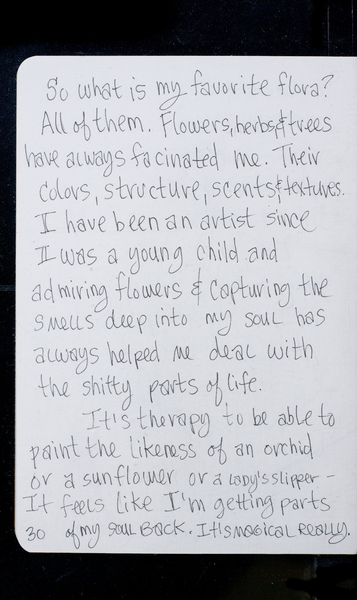 So what is my favorite flora?
All of them. Flowers, herbs, & trees
have always facinated me. Their
colors, structure, scents & textures.
I have been an artist since
I was a young child and
admiring flowers & capturing the
smells deep into my soul has
always helped me deal with
the shitty parts of life.
It's therapy to be able to
paint the likeness of an orchid
or a sunflower or a lady's slipper -
It feels like I'm getting parts
30 of my soul back. It's magical really.